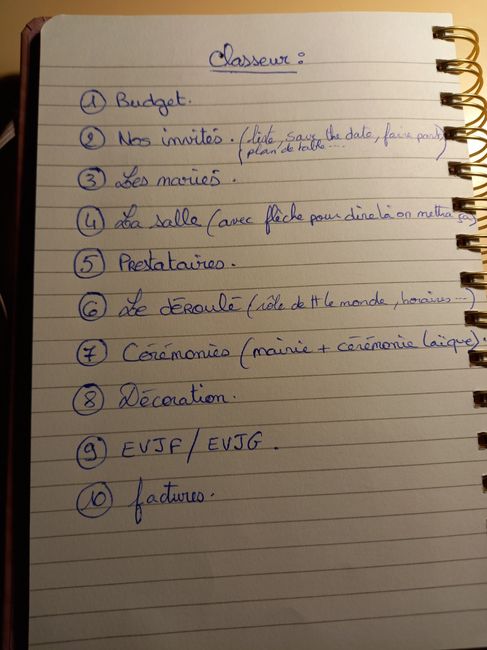 Classeur :
① Budget.
② Nos invités. (liste, save the date, faire part,
plan de table ...
③ Les mariés.
④ La salle (avec flèche pour dire là on mettra ça)
⑤ Prestataires.
⑥ Le déroulé (rôle de tt le monde, horaires ...)
⑦ Cérémonies (mairie + cérémonie laïque).
⑧ Décoration.
⑨ EVJF / EVJG.
⑩ factures.